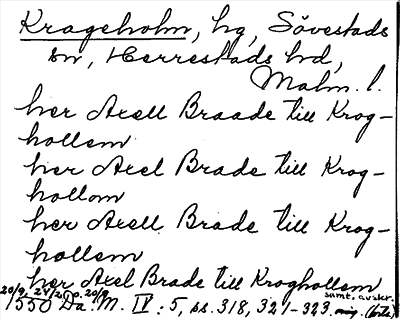 Krageholm, hg, Sövestads
sn, Herrestads hd,
Malm. l.
her Axell Braade till Krog-
hollem
her Axel Brade till Krog-
hollom
her Axell Brade till Krog-
hollem
her Axel Brade till Kroghollem
20/9, 24/2 o. 20/9 samt. avskr.
1550 Da. M. IV : 5, ss. 318, 321-323. (bil.)